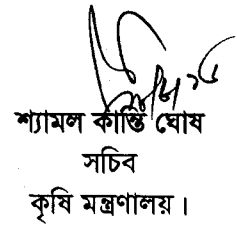 শ্যামল কান্তি ঘোষ
সচিব
কৃষি মন্ত্রণালয়।